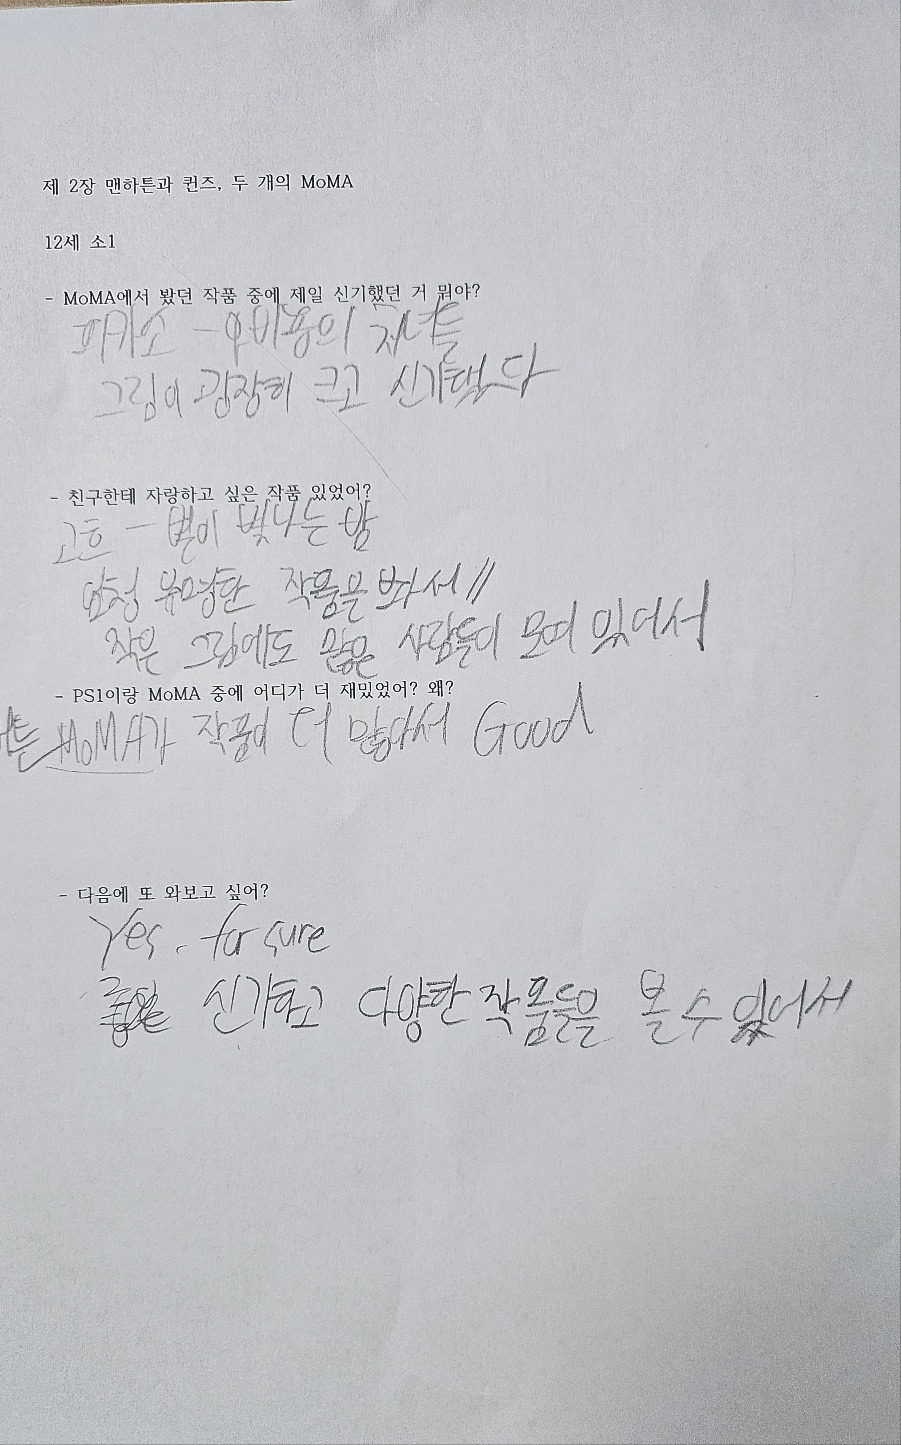 제 2장 맨하튼과 퀸즈, 두 개의 MoMA
12세 소1
- MoMA에서 봤던 작품 중에 제일 신기했던 거 뭐야?
피카소 - 아비뇽의 처녀들
그림이 굉장히 크고 신기했다
- 친구한테 자랑하고 싶은 작품 있었어?
고흐 - 별이 빛나는 밤
엄청 유명한 작품을 봐서 //
작은 그림에도 많은 사람들이 모여 있어서
- PS1이랑 MoMA 중에 어디가 더 재밌었어? 왜?
MoMA가 작품이 더 많아서 Good
- 다음에 또 와보고 싶어?
Yes. for sure
신기하고 다양한 작품들을 볼 수 있어서